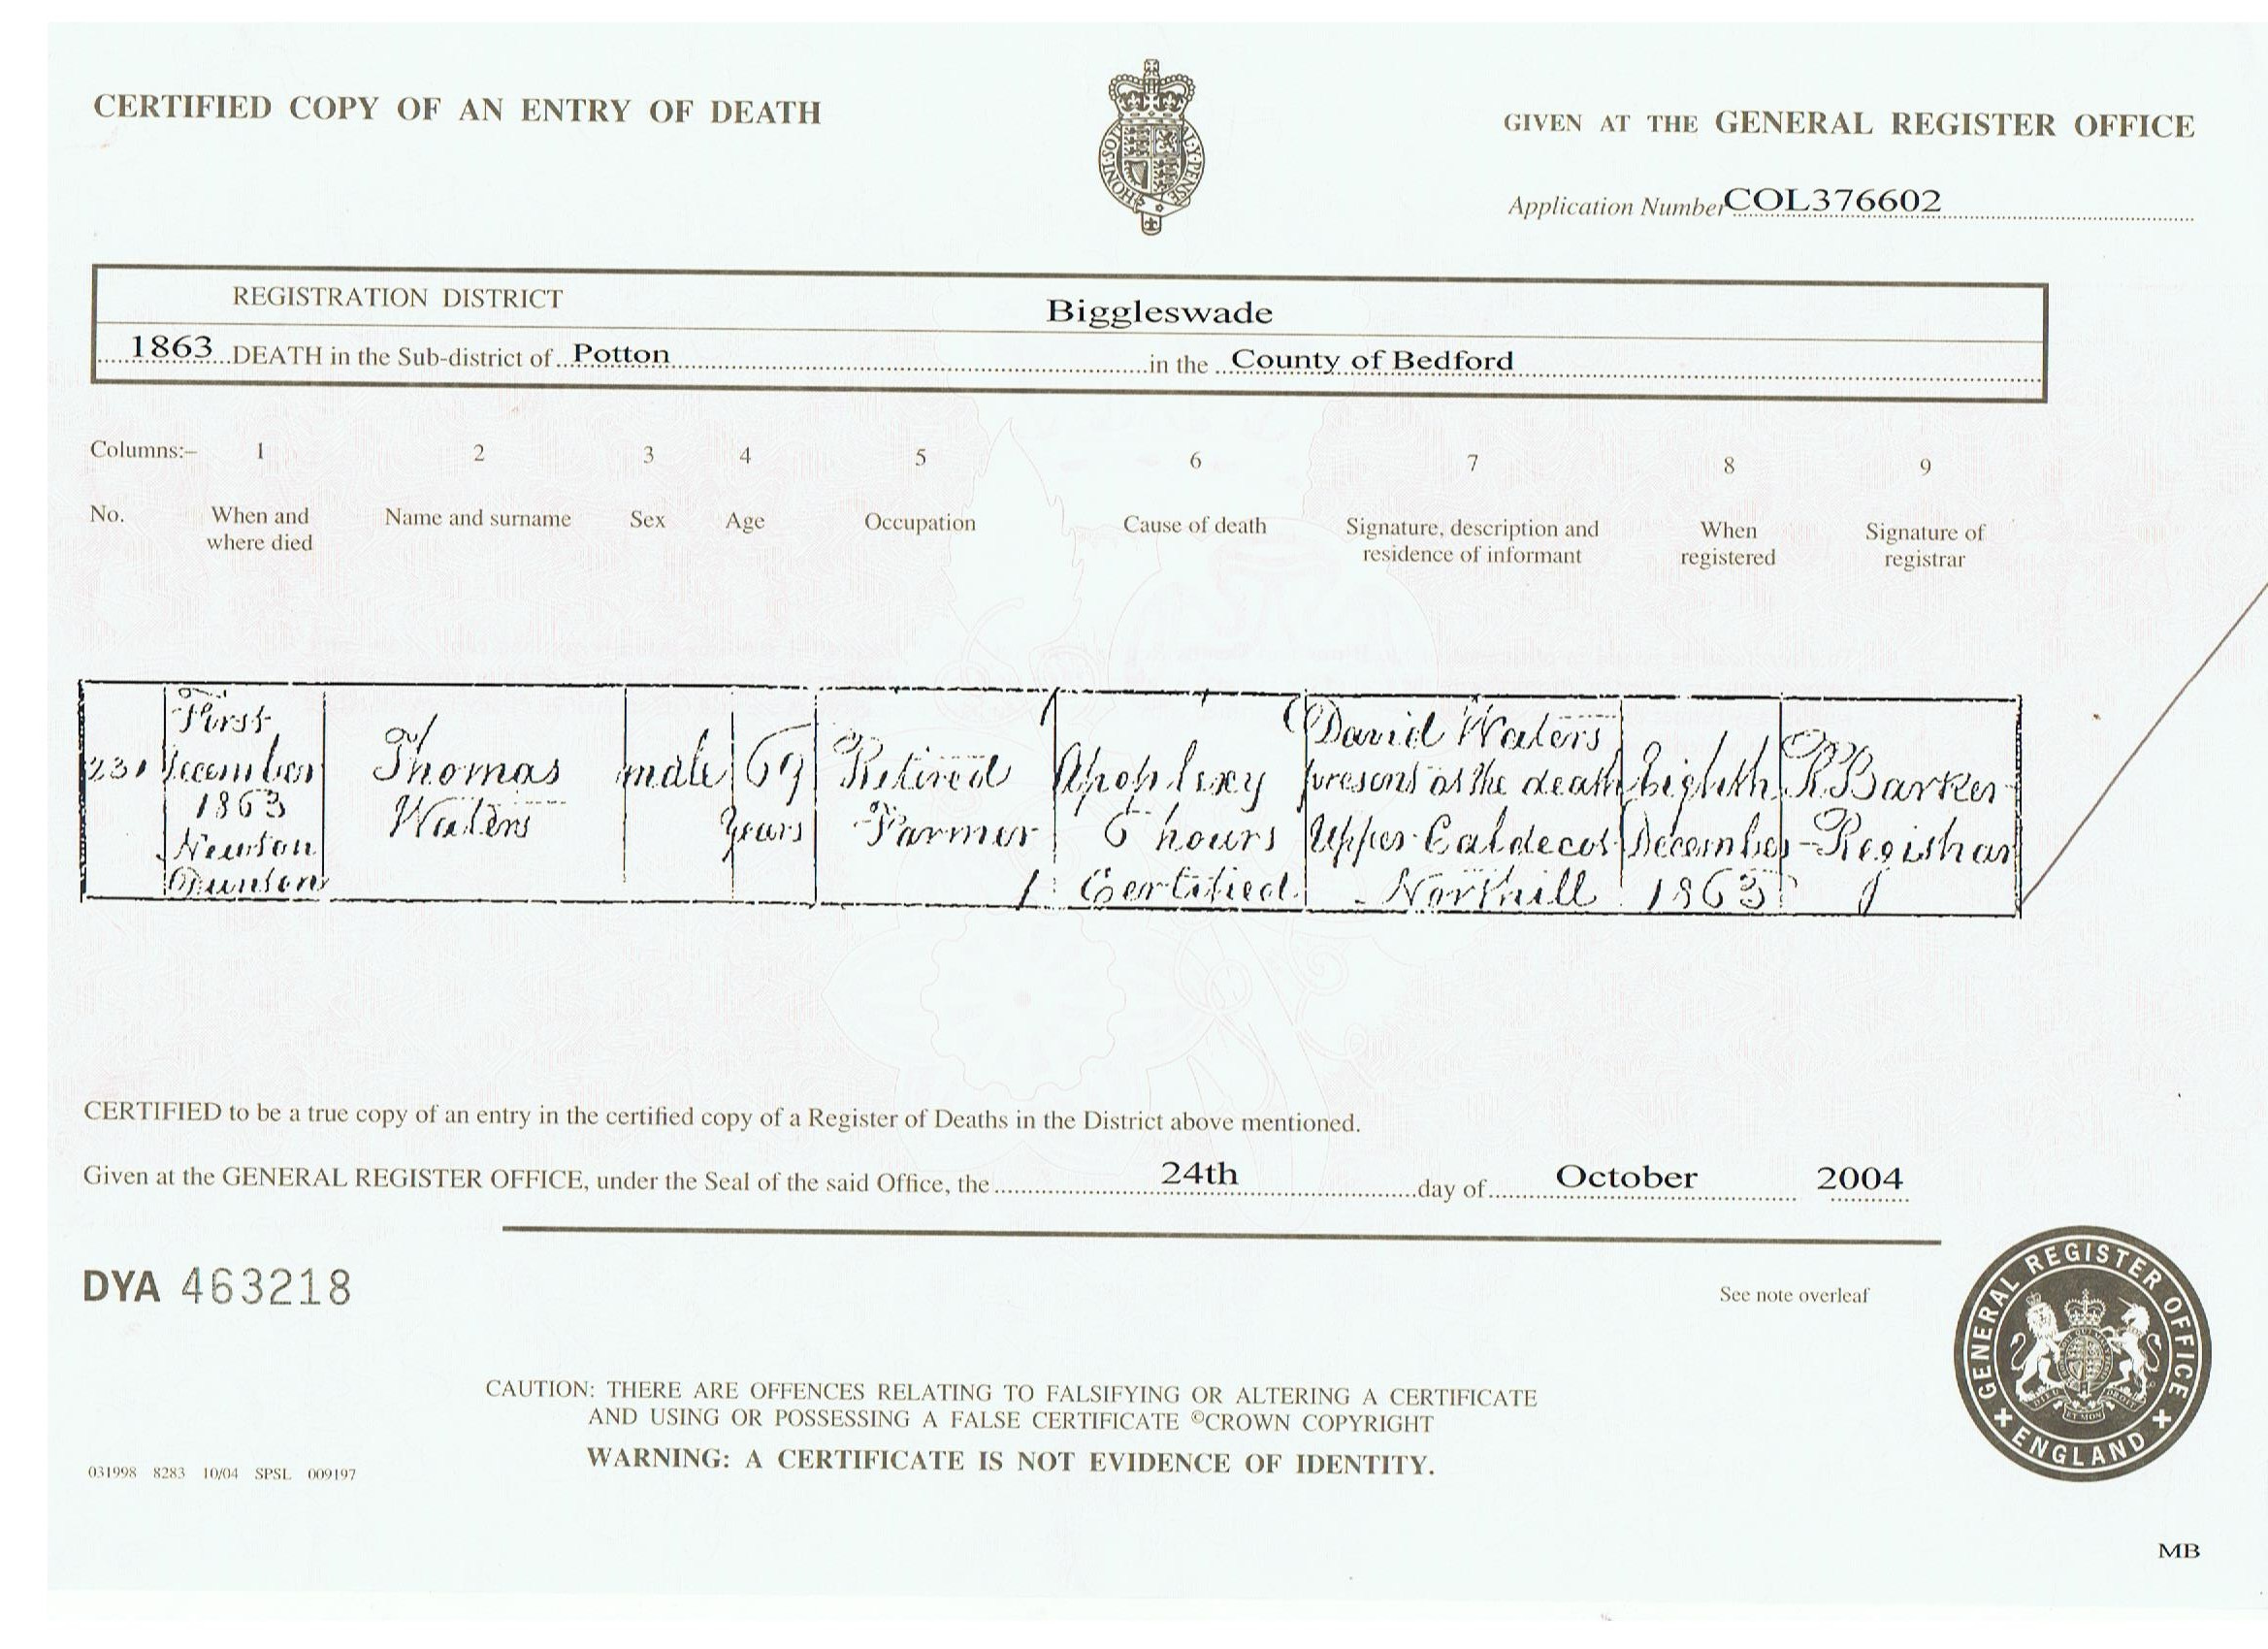 CERTIFIED COPY OF AN ENTRY OF DEATH
GIVEN AT THE GENERAL REGISTER OFFICE
HONI·SOIT Y·PENSE
Application Number COL376602
REGISTRATION DISTRICT Biggleswade
1863 DEATH in the Sub-district of Potton in the County of Bedford
Columns:– 1 2 3 4 5 6 7 8 9
No.
When and
where died
Name and surname
Sex
Age
Occupation
Cause of death
Signature, description and
residence of informant
When
registered
Signature of
registrar
231
First
December
1863
Newton
Dunton
Thomas
Waters
male
69
years
Retired
Farmer
Apoplexy
6 hours
Certified
David Waters
present at the death
Upper Caldecot
Northill
Eighth
December
1863
R. Barker
Registrar
CERTIFIED to be a true copy of an entry in the certified copy of a Register of Deaths in the District above mentioned.
Given at the GENERAL REGISTER OFFICE, under the Seal of the said Office, the 24th day of October 2004
DYA 463218
See note overleaf
GENERAL REGISTER OFFICE
ENGLAND
CAUTION: THERE ARE OFFENCES RELATING TO FALSIFYING OR ALTERING A CERTIFICATE
AND USING OR POSSESSING A FALSE CERTIFICATE ©CROWN COPYRIGHT
WARNING: A CERTIFICATE IS NOT EVIDENCE OF IDENTITY.
031998 8283 10/04 SPSL 009197
MB